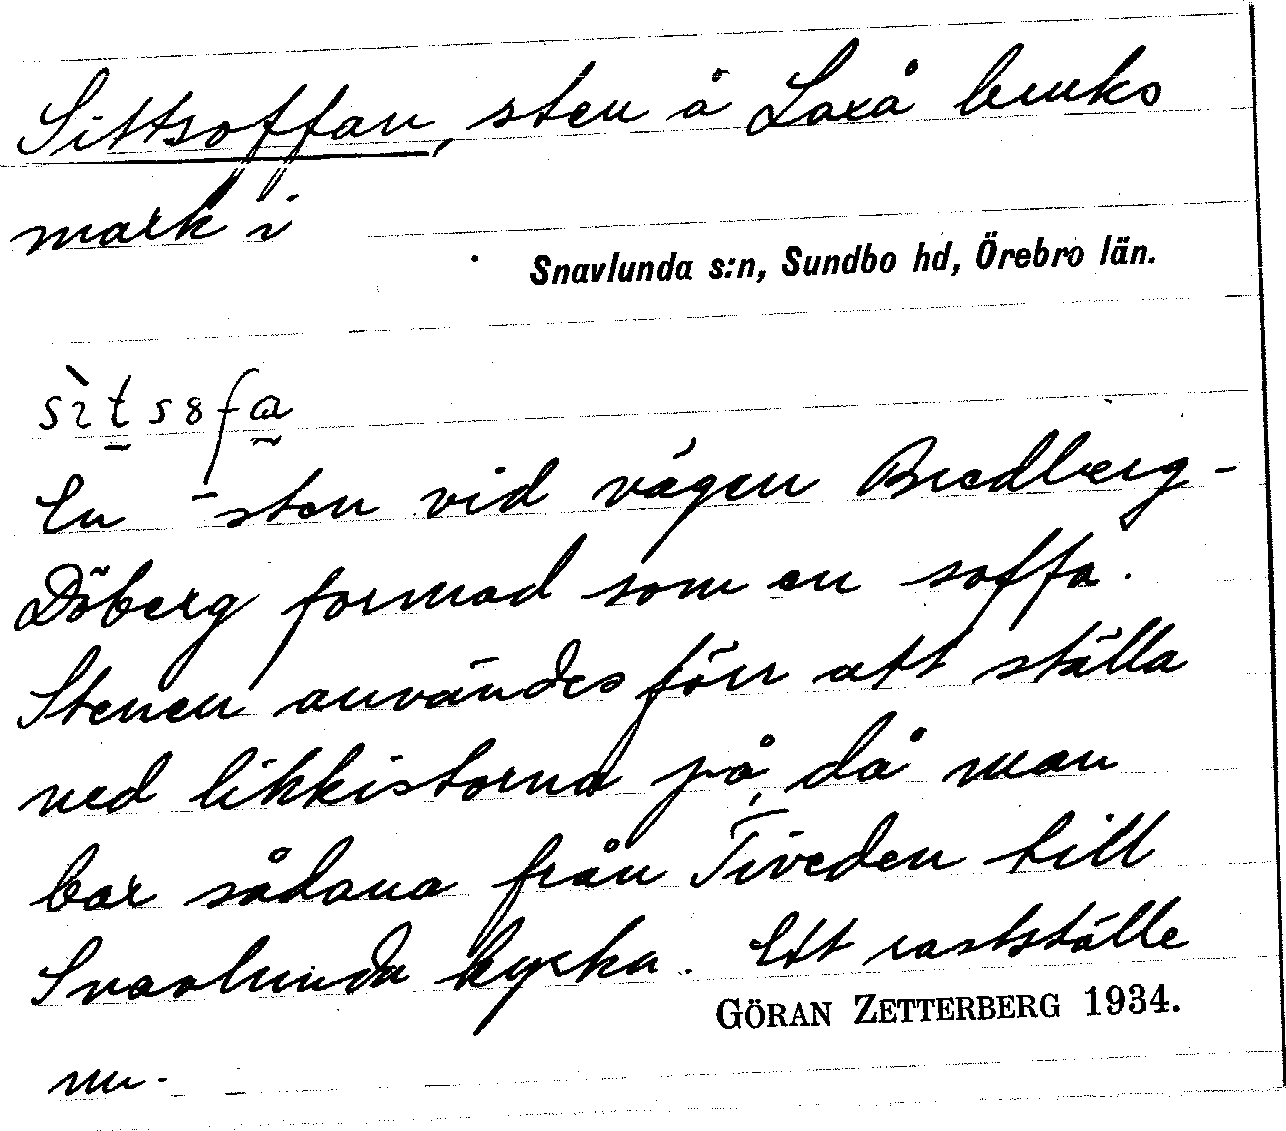 Sittsoffan, sten å Laxå bruks
mark i
Snavlunda s:n, Sundbo hd, Örebro län.
sìtsofa
En sten vid vägen Bredberg-
Döberg formad som en soffa.
Stenen användes förr att ställa
ned likkistorna på, då man
bar sådana från Tiveden till
Snavlunda kyrka. Ett rastställe
GÖRAN ZETTERBERG 1934.
nu.